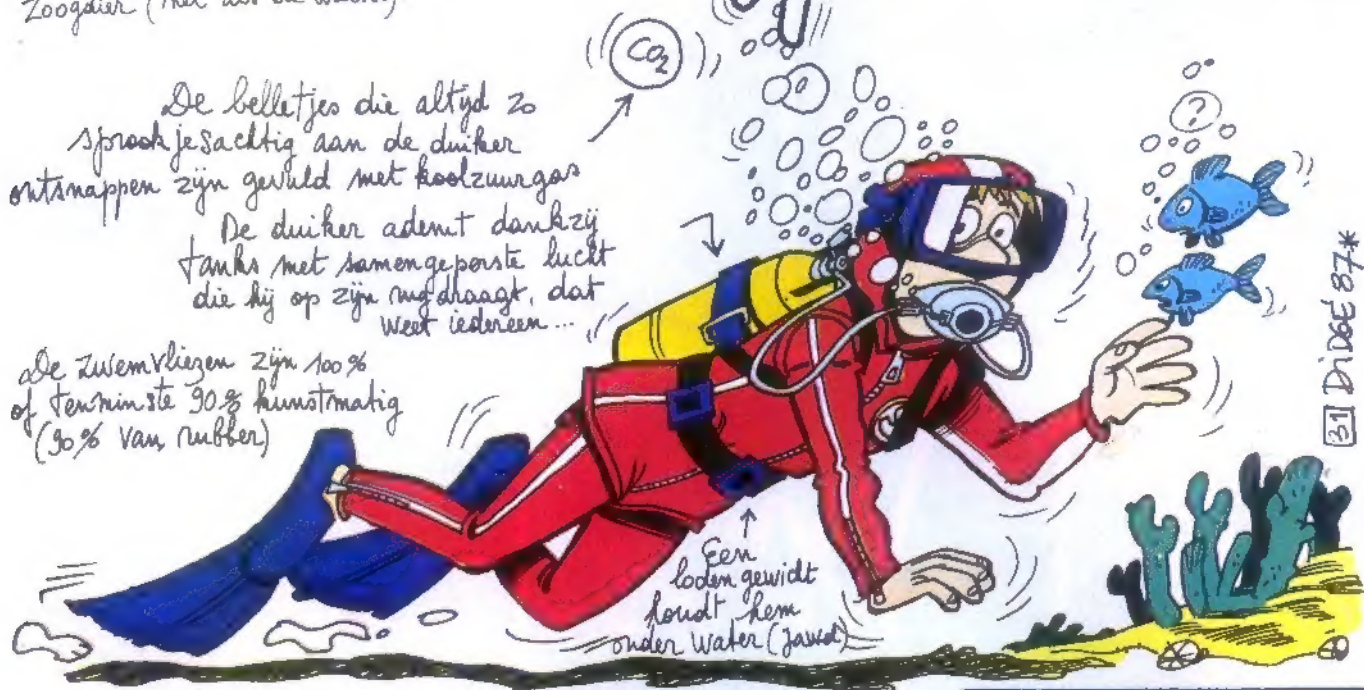 Zoogdier
CO2
De belletjes die altijd zo
sprookjesachtig aan de duiker
ontsnappen zijn gevuld met koolzuurgas
De duiker ademt dankzij
tanks met samengeperste lucht
die hij op zijn rug draagt, dat
weet iedereen...
De zwemvliezen zijn 100%
of tenminste 90% kunstmatig
(90% van rubber)
Een
loden gewicht
houdt hem
onder water (jawel)
?
31 DiDGé 87*